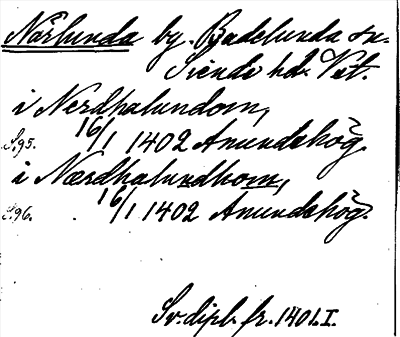 Närlunda by. Badelunda sn.
Siende hd. Vst.
i Nerdhalundom,
S.95. 16/1 1402 Anundshög.
i Nærdhalundhom,
S.96. 16/1 1402 Anundshög.
Sv. dipl. fr. 1401. I.